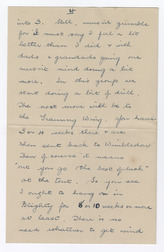 II
into B. Well, mustn't grumble
for I must say I feel a lot
better than I did & with
dads & grandads going one
musn't mind doing a bit
more. In this group we
start doing a bit of drill
The next move will be to
the Training Wing. After
3 or 4 weeks there & are
then sent back to Wimbledon
Then of course it means
out you go "the best of luck"
at the Front. So you see
I ought to hang on in
Blighty for 8 or 10 weeks or more
at least. There is no
need whatever to get wind